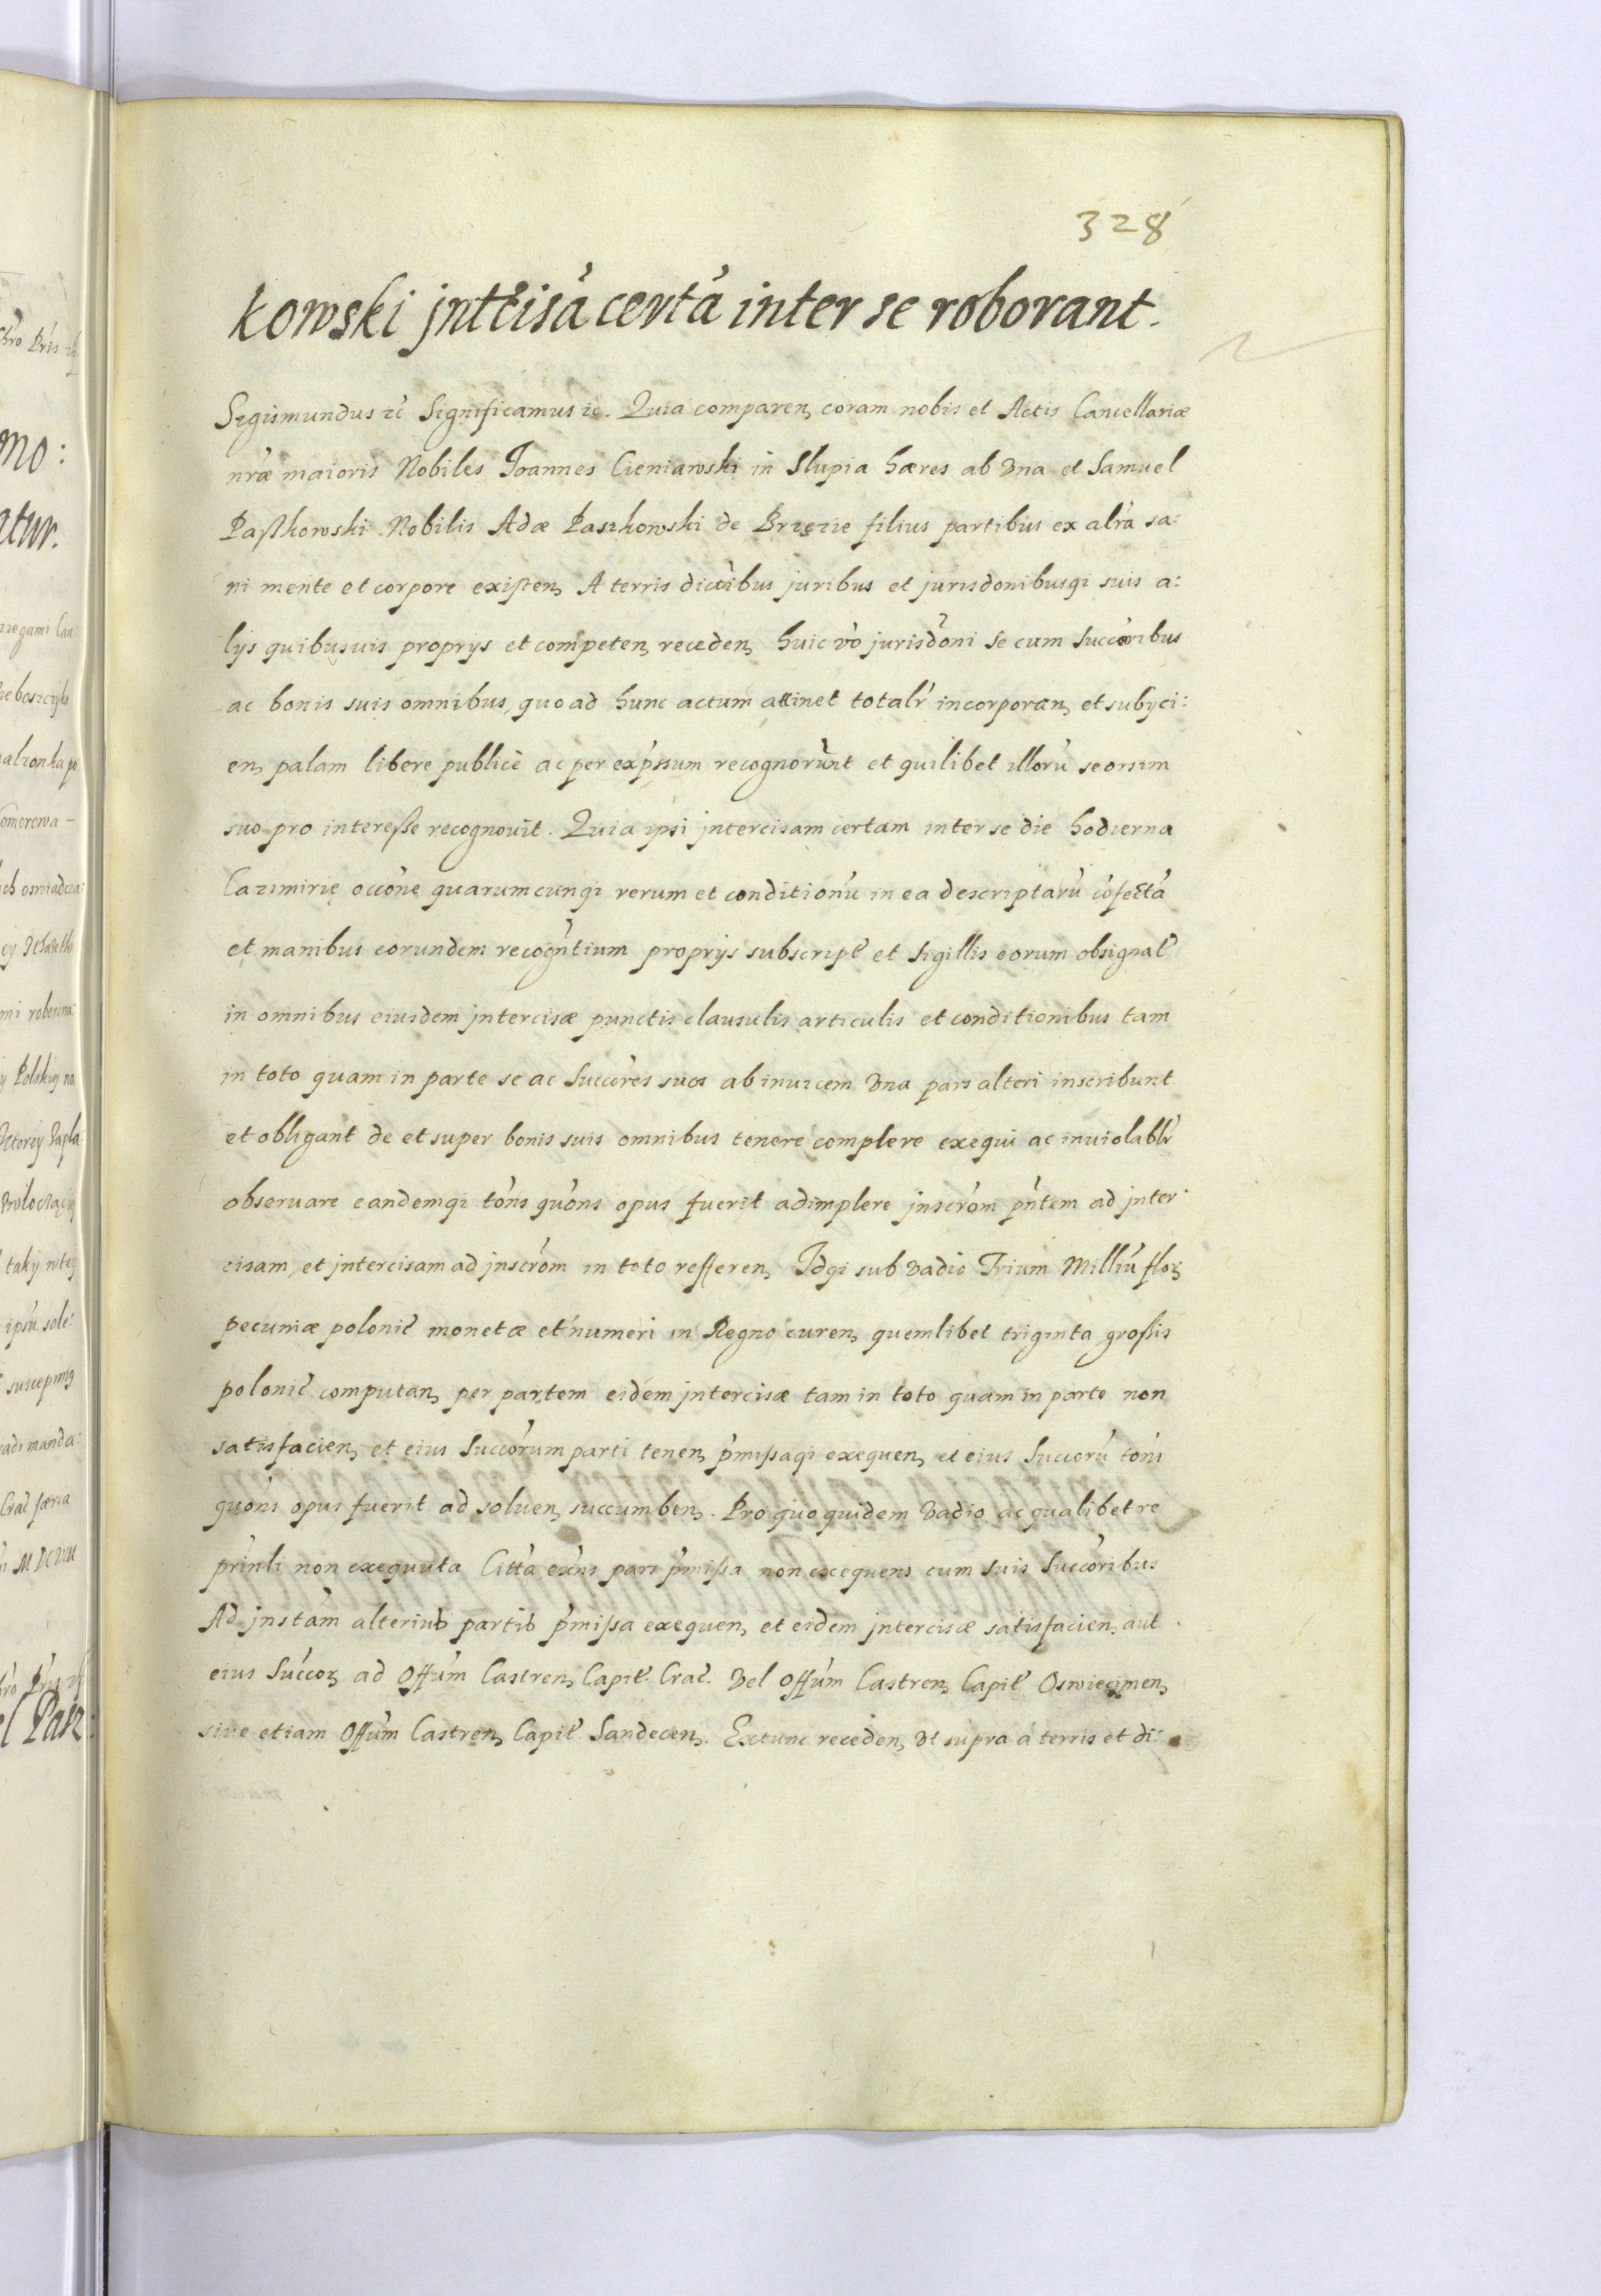 328
kowski jntcisá certá inter se roborant.
Sigismundus etc̃ Significamus etc. Quia comparen, coram nobis et Actis Cancellariæ
nr̃æ maioris Nobiles Joannes Cieniawski in Slupia hæres ab Vna et Samuel
Paszkowski Nobilis Adæ Paszkowski de Brzezie filius partibus ex altr̃a sa:
ni mente et corpore existen, A terris dictibus juribus et jurisdonibusqi suis a:
lijs quibusuis proprijs et competen, receden, huic vo jurisdoni se cum Succoribus
ac bonis suis omnibus, quo ad hunc actum attinet totalr̃ incorporan, et subijci:
en, palam libere publice ac per expssum recognorunt et quilibet illorũ seorsim
suo pro interesse recognouit. Quia ipsi jntercisam certam inter se die hodierna
Cazimirie occone quarumcunqi rerum et conditionũ in ea descriptarũ cofectã
et manibus eorundem recogntium proprijs subscript̃ et sigillis eorum obsignat̃
in omnibus eiusdem jntercisæ punctis clausulis articulis et conditionibus tam
in toto quam in parte se ac Succores suos ab inuicem Vna pars alteri inscribunt
et obligant de et super bonis suis omnibus tenere complere exequi ac inuiolablr̃
obseruare eandemqi tons quons opus fuerit adimplere jnscrom pntem ad jnter:
cisam, et jntercisam ad jnscrom in toto refferen, Idqi sub Vadio Trium Milliũ flor,
pecuniæ polonic̃ monetæ et numeri in Regno curen, quemlibet triginta grossis
polonic̃ computan, per partem eidem jntercisæ tam in toto quam in parte non
satisfacien, et eius Succorum parti tenen, pmissaqi exequen, et eius Succorũ tons
quons opus fuerit ad soluen, succumben,. Pro quo quidem Vadio ac qualibet re
prinli non exequuta Citta exns pars pmissa non exequens cum suis Succoribus
Ad jnstam alterius partis pmissa exequen, et eidem jntercisæ satisfacien, aut
eius Succor, ad Offum Castren, Capit̃. Crac̃. Vel Offum Castren, Capit̃ Oswiecimen,
siue etiam Offum Castren, Capit̃ Sandecen,. Extunc receden, Vt supra a terris et di: